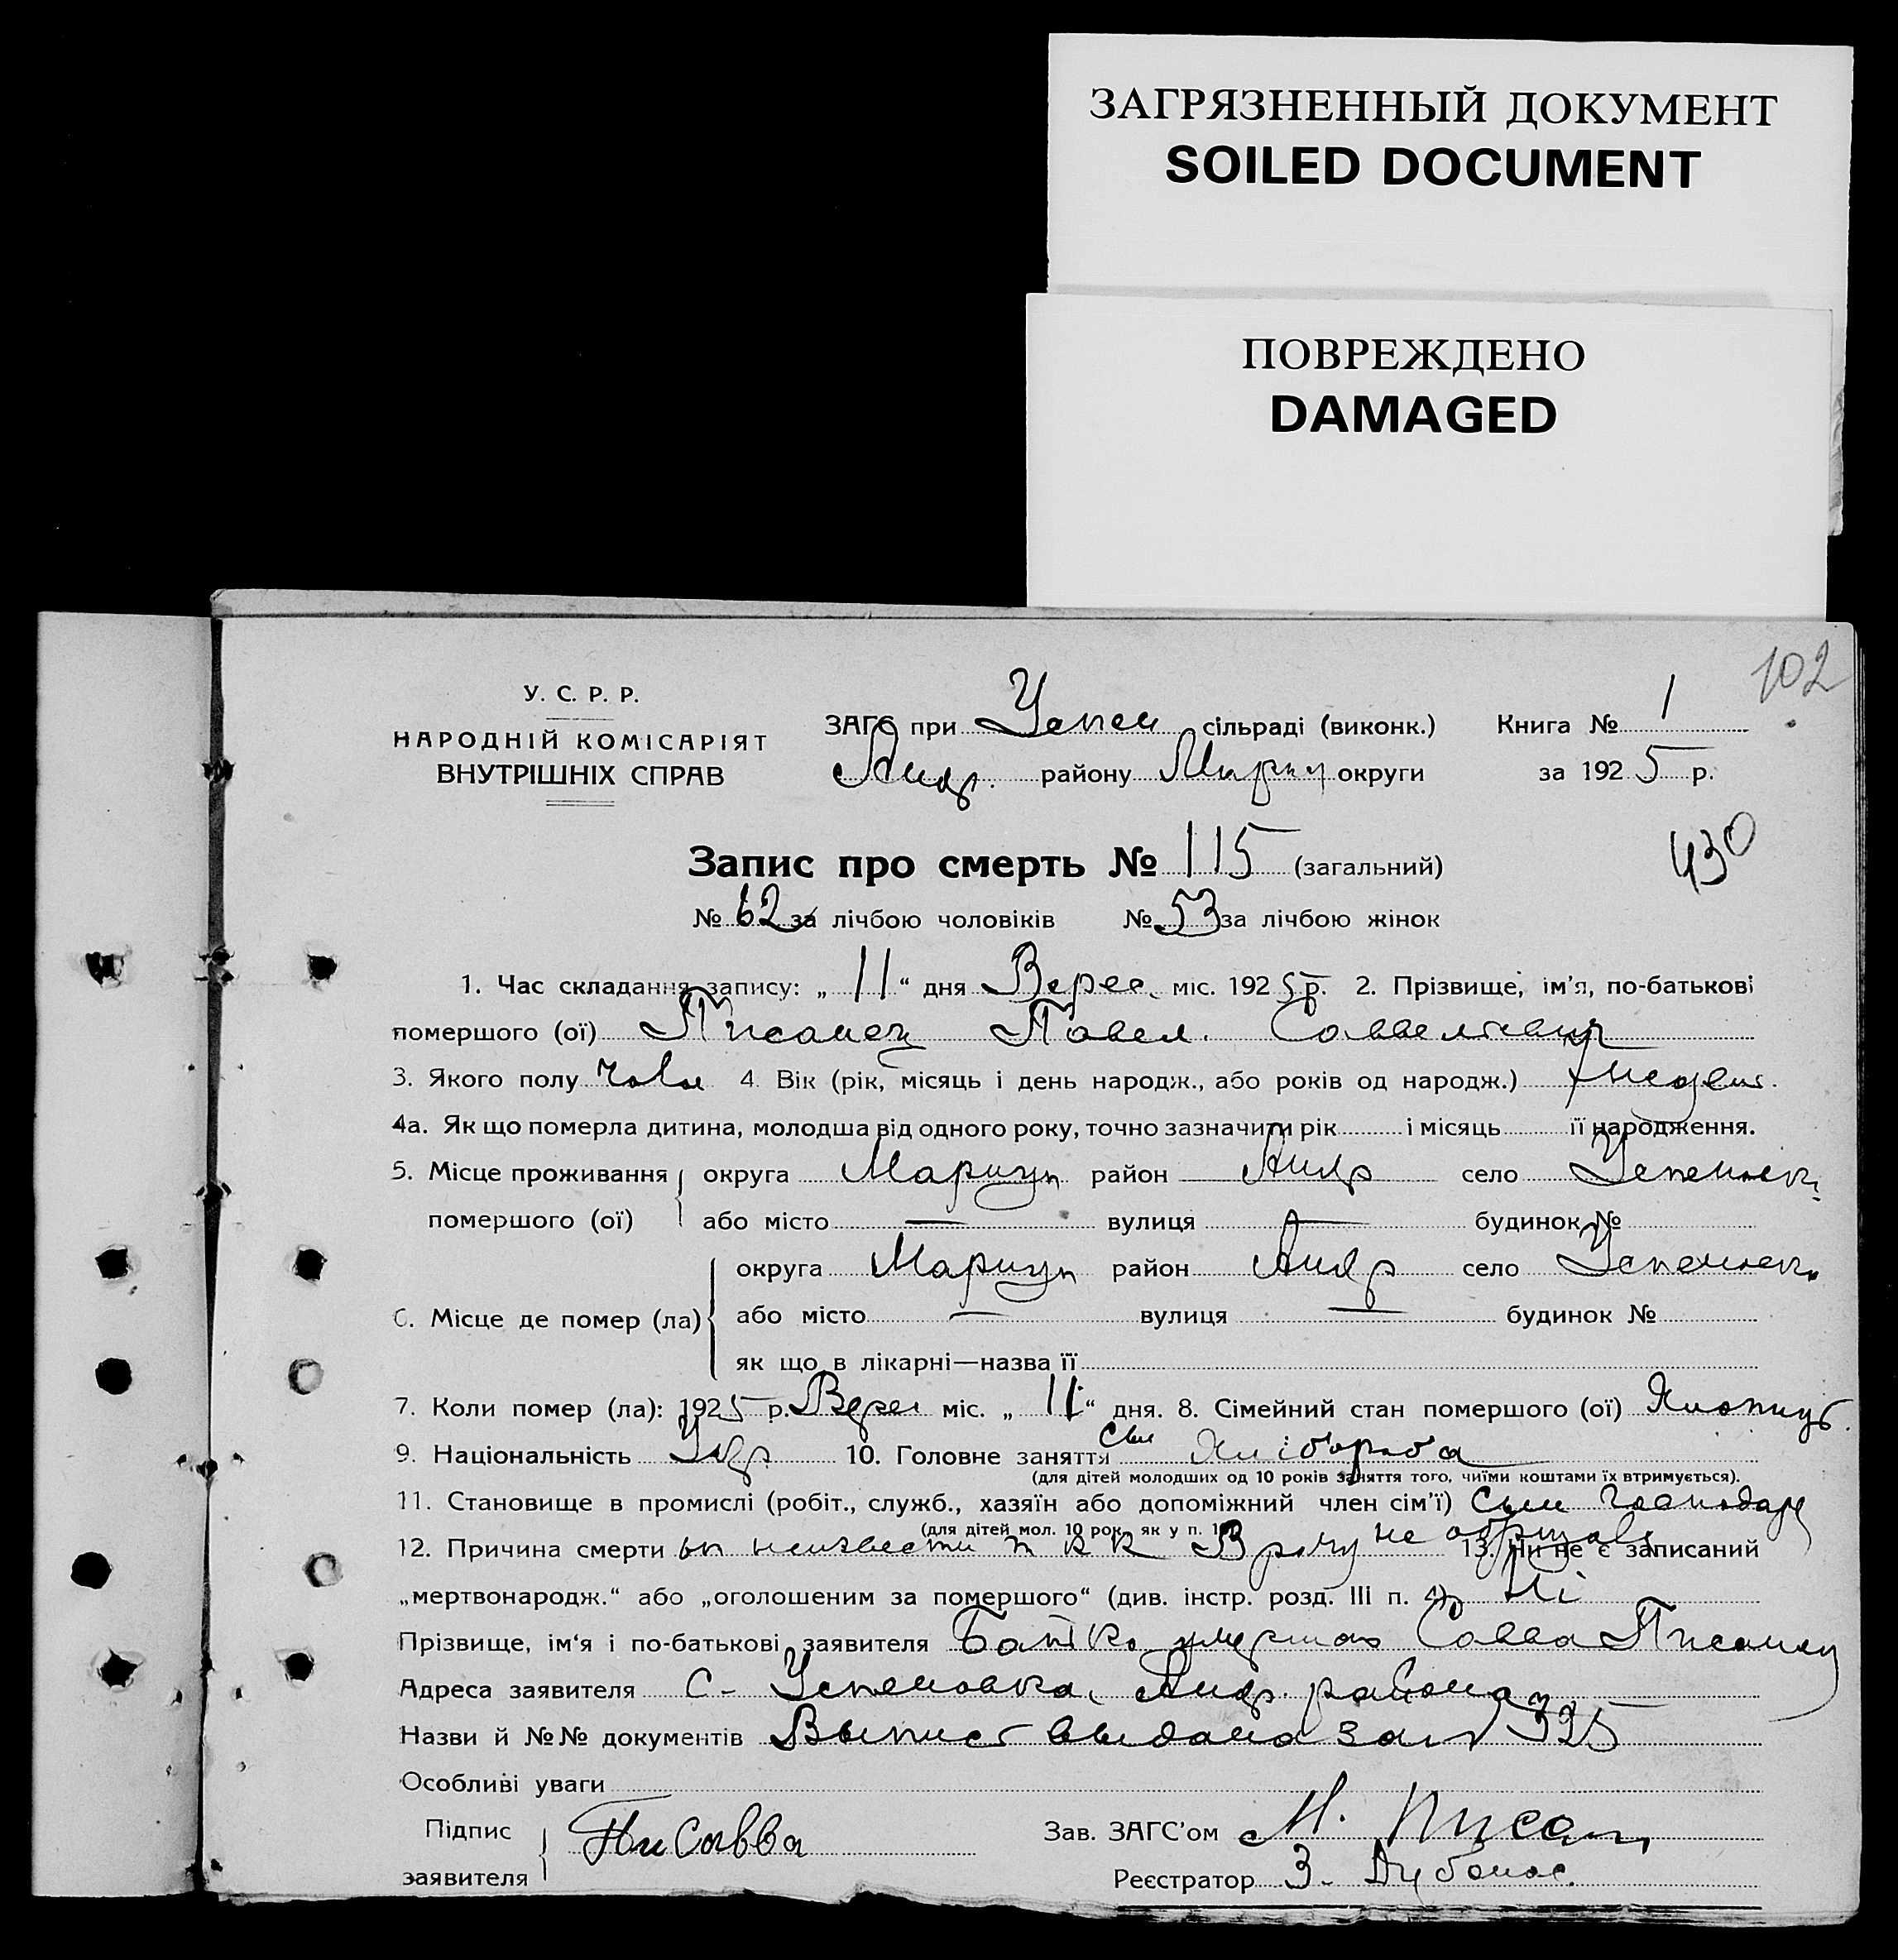 ЗАГРЯЗНЕННЫЙ ДОКУМЕНТ
SOILED DOCUMENT
ПОВРЕЖДЕНО
DAMAGED
102
У. С. Р. Р.
НАРОДНІЙ КОМІСАРІЯТ
ВНУТРІШНІХ СПРАВ
ЗАГС при Успен сільраді (виконк.) Книга № 1
Андр. району Марiуп округи за 1925 р.
430
Запис про смерть № 115 (загальний)
№ 62 за лічбою чоловіків № 53 за лічбою жінок
1. Час складання запису: „ 11 “ дня Верес. міс. 1925 р. 2. Прізвище, ім'я, по-батькові
помершого (ої) Писанец Павел. Савельевич
3. Якого полу 4. Вік (рік, місяць і день народж., або років од народж.)
4а. Як що померла дитина, молодша від одного року, точно зазначити рік і місяць її народження.
5. Місце проживання округа Мариуп район Андр село Успеновк.
помершого (ої) або місто — вулиця — будинок №
округа Мариуп район Андр село Успеновк.
6. Місце де помер (ла) або місто — вулиця — будинок №
як що в лікарні—назва її
7. Коли помер (ла): 1925 р. Верес міс. „ 11 “ дня. 8. Сімейний стан помершого (ої)
9. Національність Укр 10. Головне заняття Сын Хлібороба
(для дітей молодших од 10 років заняття того, чиїми коштами їх втримується).
11. Становище в промислі (робіт., служб., хазяїн або допоміжний член сім'ї) Сын Господаря
(для дітей мол. 10 рок. як у п. 10)
12. Причина смерти неизвестн Врачу не обращал 13. Чи не є записаний
„мертвонародж.“ або „оголошеним за помершого“ (див. інстр. розд. III п. 4) Ні
Прізвище, ім'я і по-батькові заявителя Батько Савва Писанец
Адреса заявителя с- Успеновка, Андр. района
Назви й №№ документів Выпись выдана за № 325
Особливі уваги
Підпис заявителя Пи Савва
Зав. ЗАГС'ом Н. Писан
Реєстратор З.